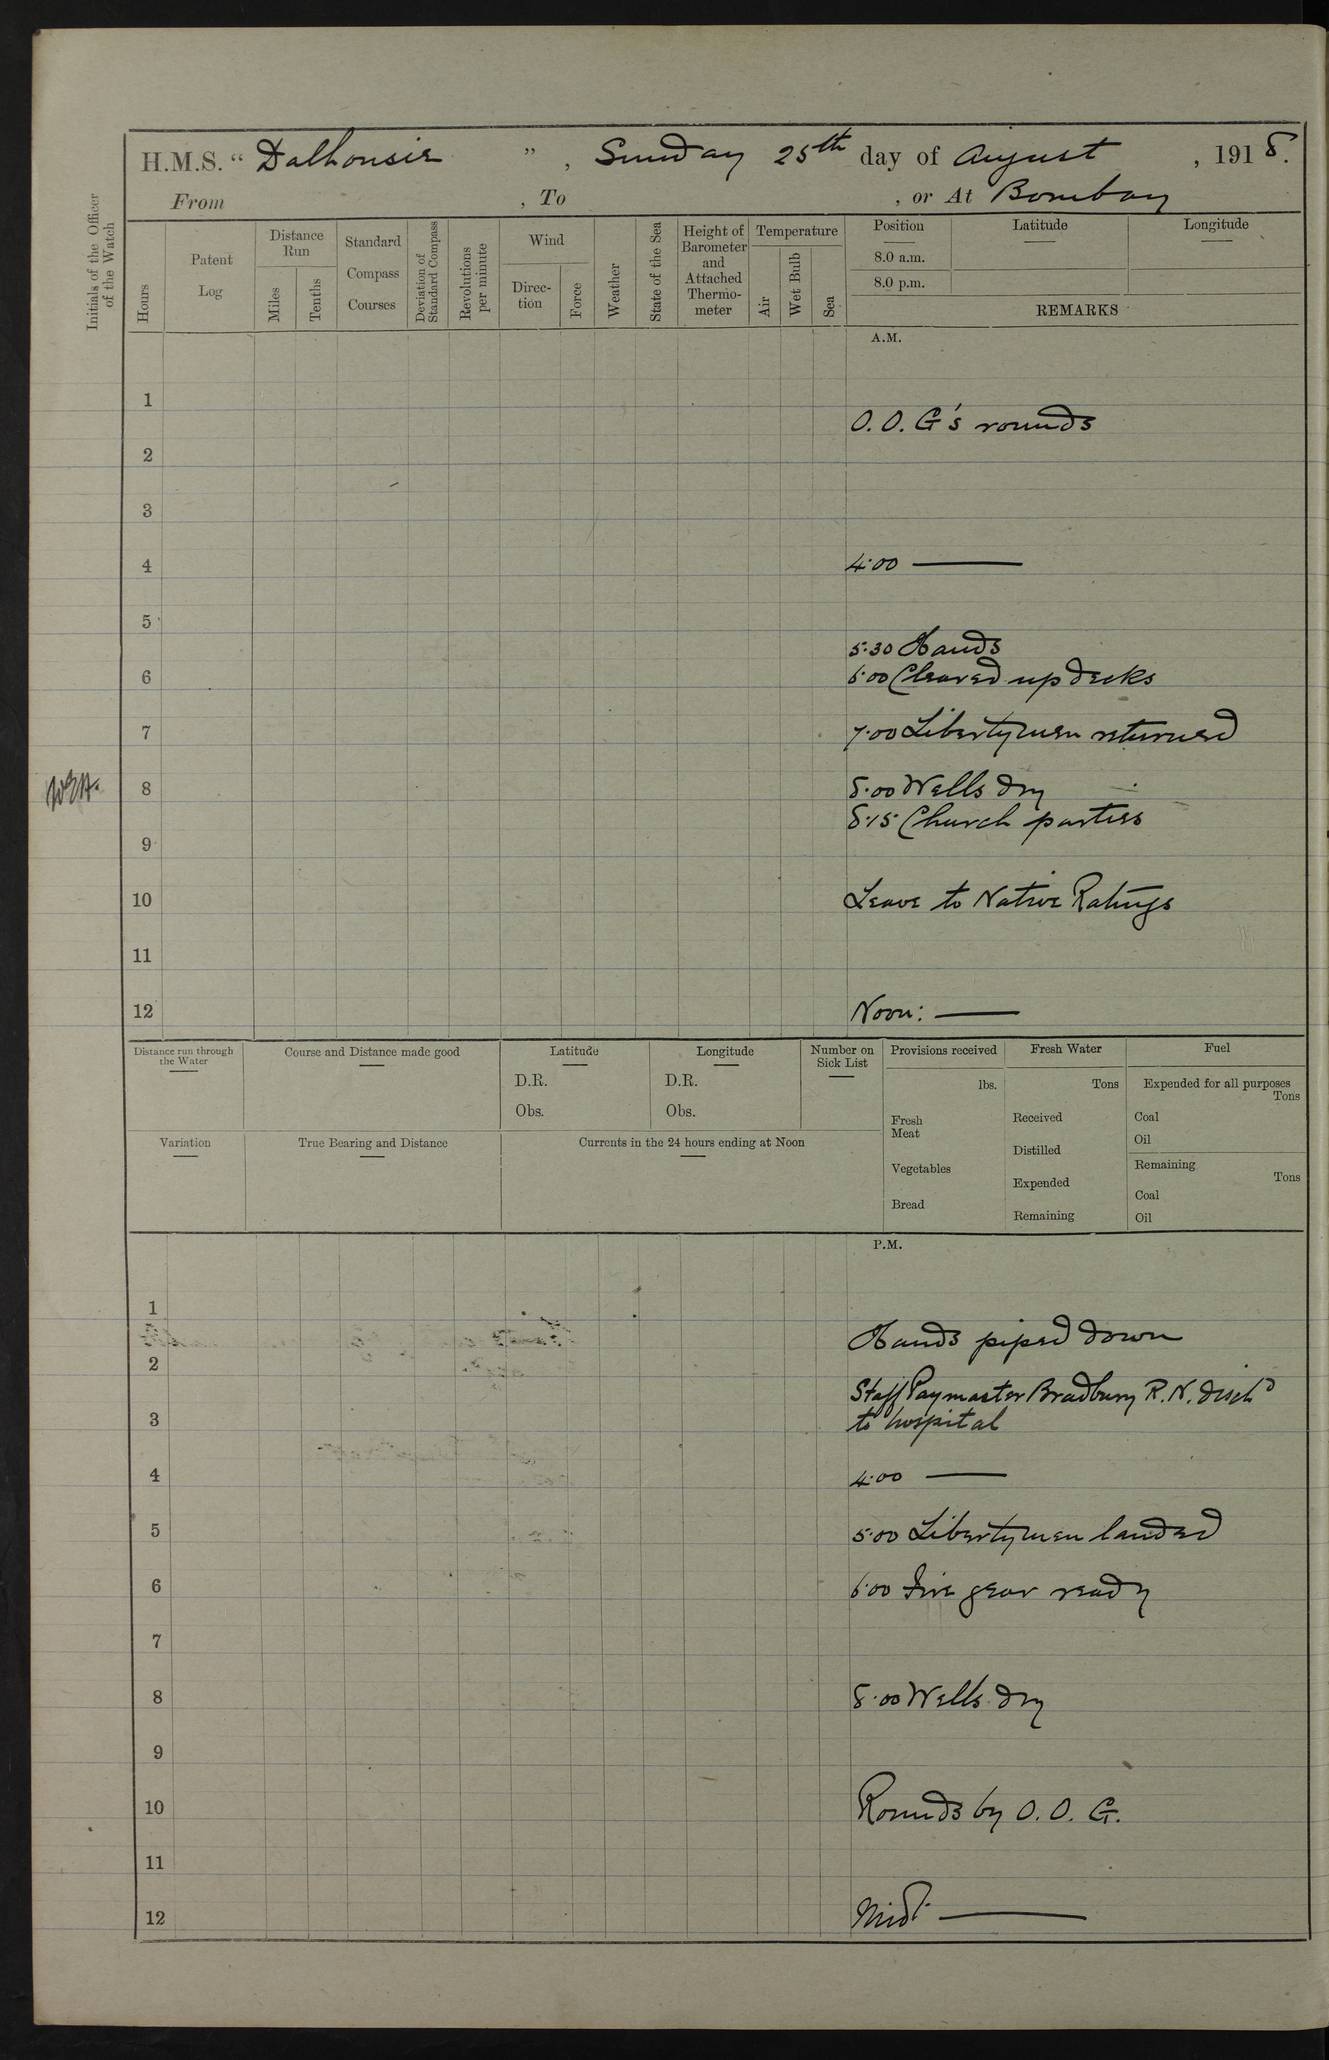 H.M.S. “ Dalhousie ” , Sunday 25th day of August , 1918.
From , To , or At Bombay
Initials of the Officer
of the Watch
Hours
Patent
Log
Distance
Run
Miles
Tenths
Standard
Compass
Courses
Deviation of
Standard Compass
Revolutions
per minute
Wind
Direc-
tion
Force
Weather
State of the Sea
Height of
Barometer
and
Attached
Thermo-
meter
Temperature
Air
Wet Bulb
Sea
Position
8.0 a.m.
8.0 p.m.
Latitude
Longitude
REMARKS
A.M.
1
O. O. G's rounds
2
3
4 4·00 ———
5
5·30 Hands
6 6·00 Cleared up decks
7 7·00 Libertymen returned
8 8·00 Wells dry
8·15 Church parties
9
10 Leave to Native Ratings
11
12 Noon: ———
Distance run through
the Water
Course and Distance made good
Latitude
D.R.
Obs.
Longitude
D.R.
Obs.
Number on
Sick List
Provisions received
lbs.
Fresh
Meat
Vegetables
Bread
Fresh Water
Tons
Received
Distilled
Expended
Remaining
Fuel
Expended for all purposes
Tons
Coal
Oil
Remaining
Tons
Coal
Oil
Variation
True Bearing and Distance
Currents in the 24 hours ending at Noon
P.M.
1
Hands piped down
2
Staff Paymaster Bradbury R.N. dischd
3 to hospital
4 4·00 ———
5 5·00 Libertymen landed
6 6·00 Fire gear ready
7
8 8·00 Wells dry
9
10 Rounds by O. O. G.
11
12 Midt. ———